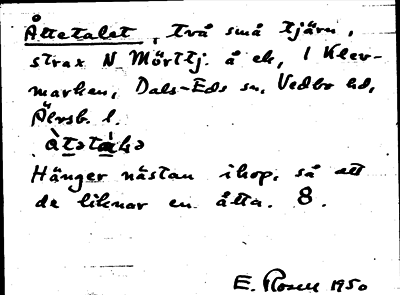 Åttetalet, två små tjärn,
strax N Mörttj. å ek, i Klev-
marken, Dals-Eds sn, Vedbo hd,
Älvsb. l.
Hänger nästan ihop, så att
de liknar en åtta. 8.
E. Rosell 1950